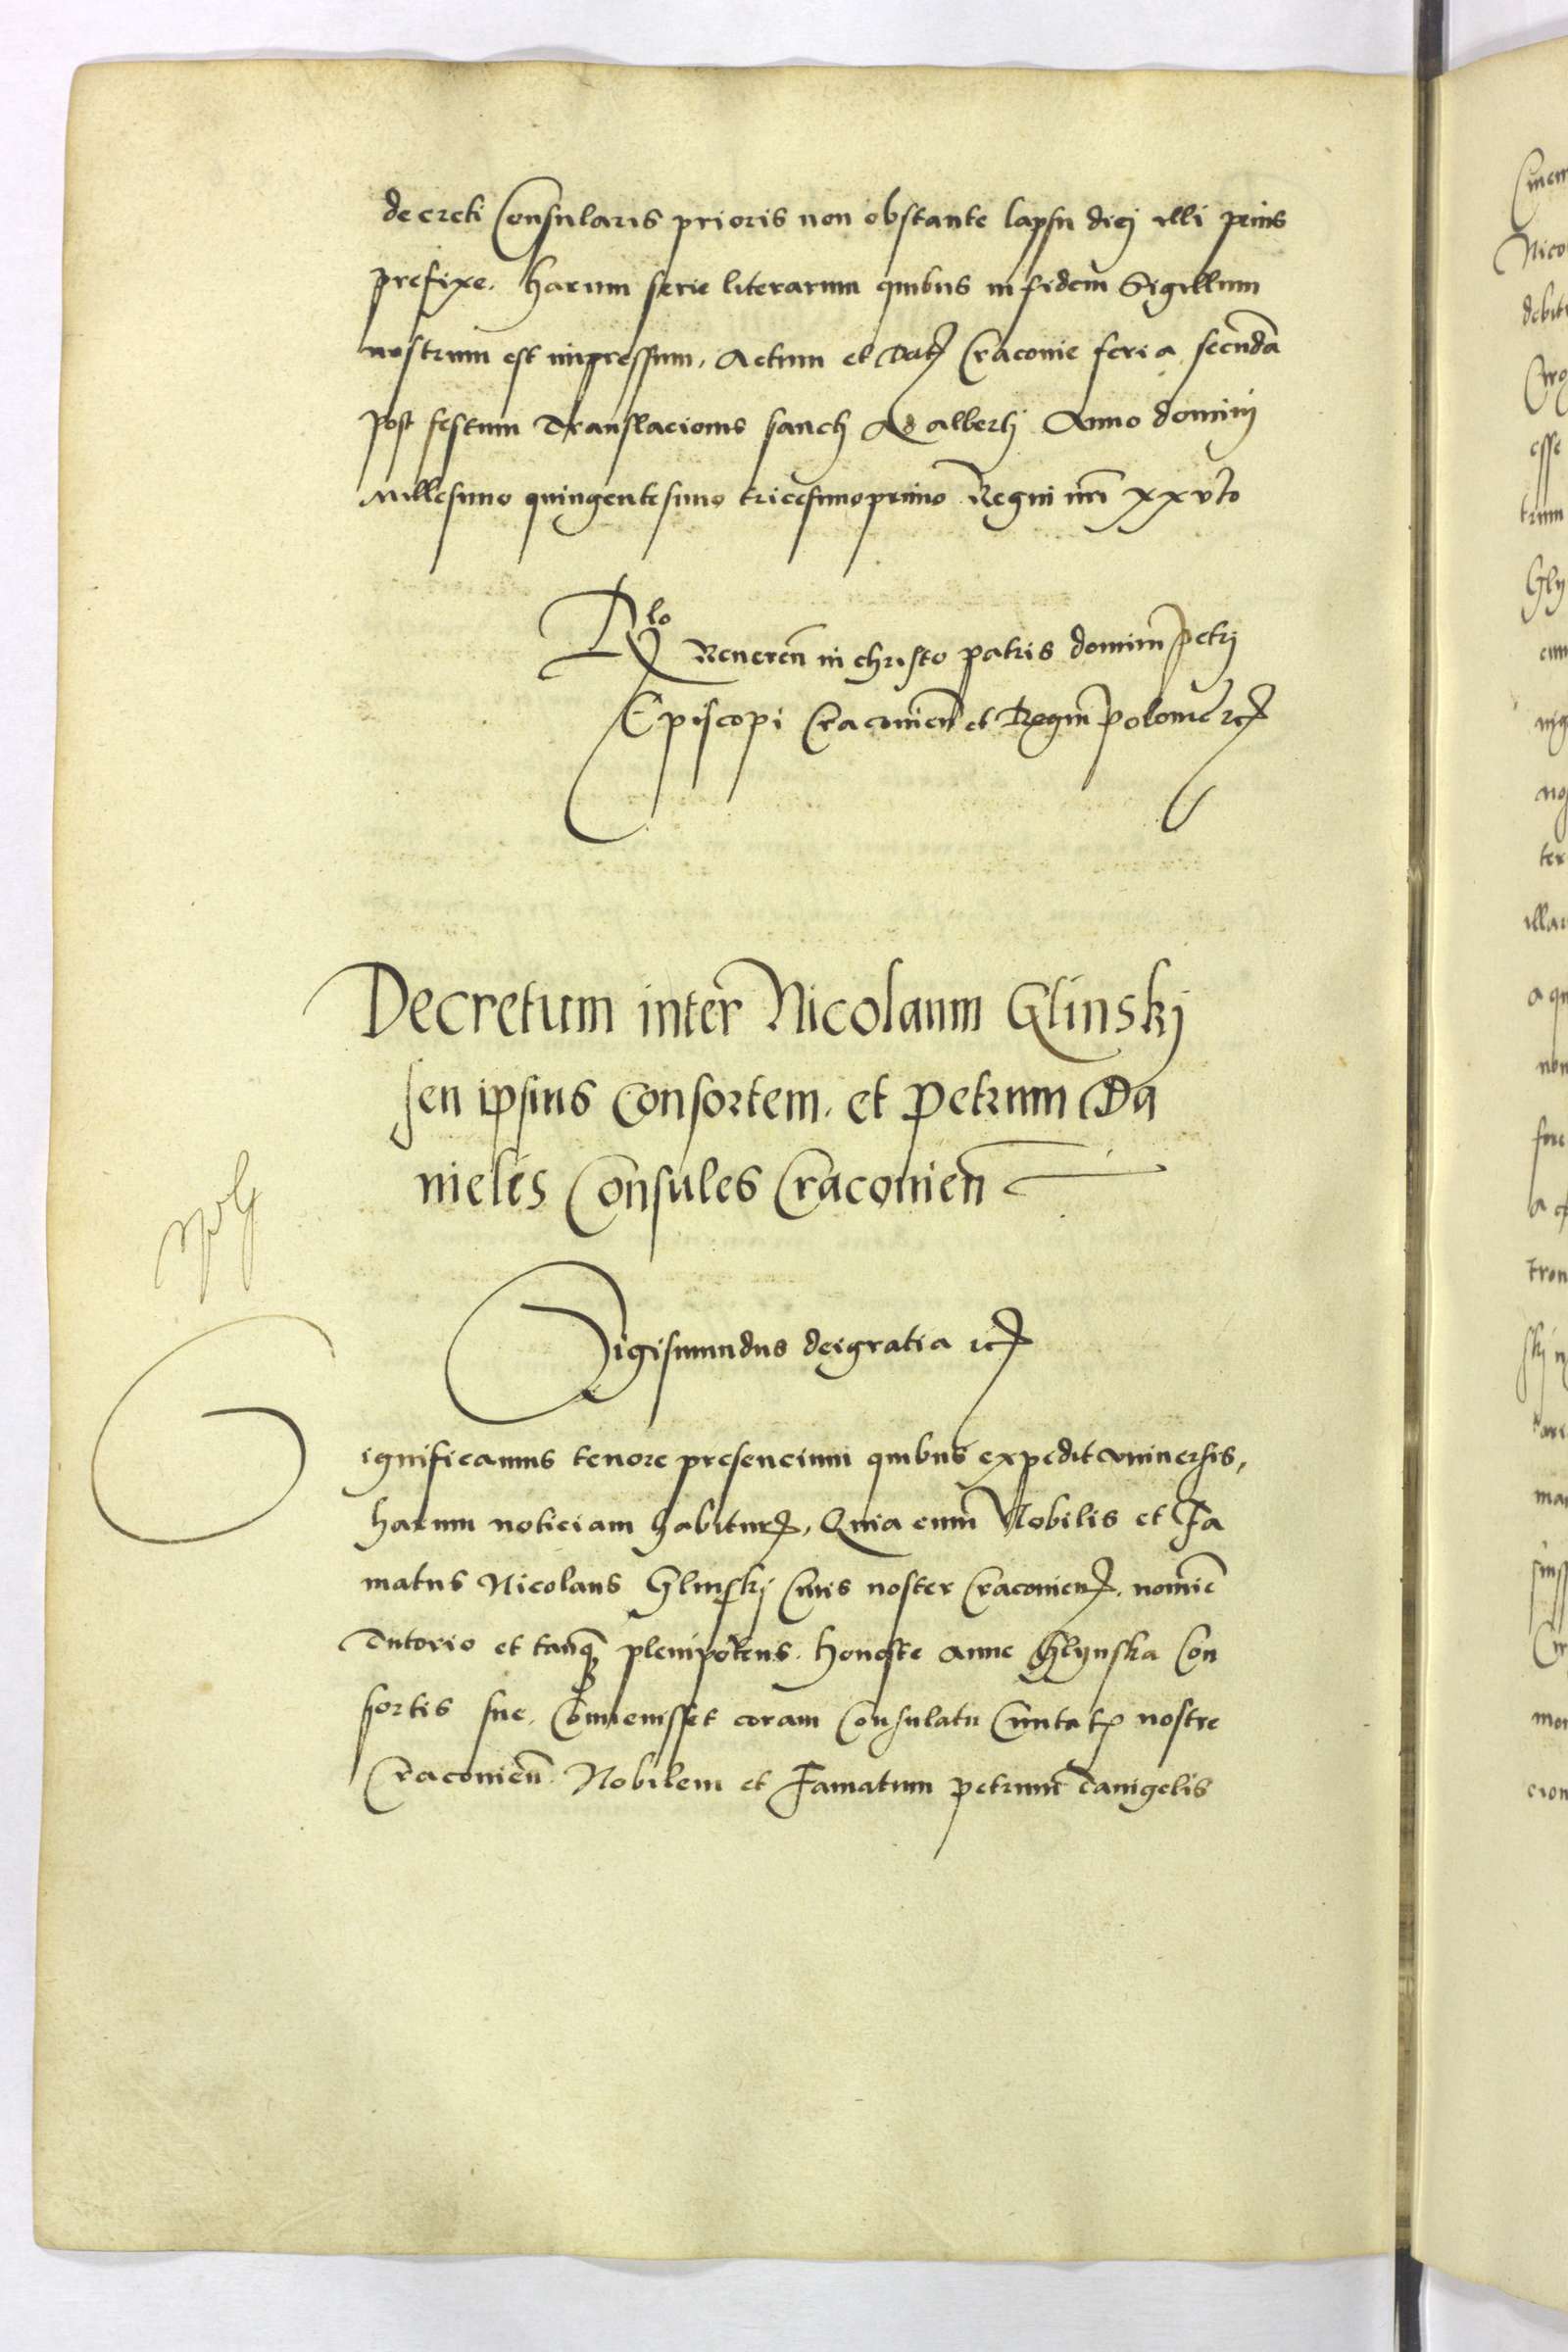 decreti Consularis prioris non obstante lapsu diej illi prius
prefixe. harum serie literarum quibus in fidem Sigillum
nostrum est impressum. Actum et Dat Cracovie feria secunda
post festum Translacionis sancti Adalberti Anno dominj
Millesimo quingentesimo tricesimoprimo Regni nri xxvto
Rlo Reveren in christo patris domini petrj
Episcopi Cracovien et Regni polonie etc
Decretum inter Nicolaum Glinskj
seu ipsius Consortem. et Petrum Da
nielis Consules Cracovien
Sigismundus dei gratia etc
Significamus tenore presencium quibus expedit vniuersis,
harum noticiam habitur, Quia cum Nobilis et Fa
matus Nicolaus Glinskj Ciuis noster Cracovien. nomine
Tutorio et tanq plenipotens. honeste Anne Glijnska Con
sortis sue. Conuenisset coram Consulatu Ciuitatis nostre
Cracovien. Nobilem et Famatum petrum Danigelis